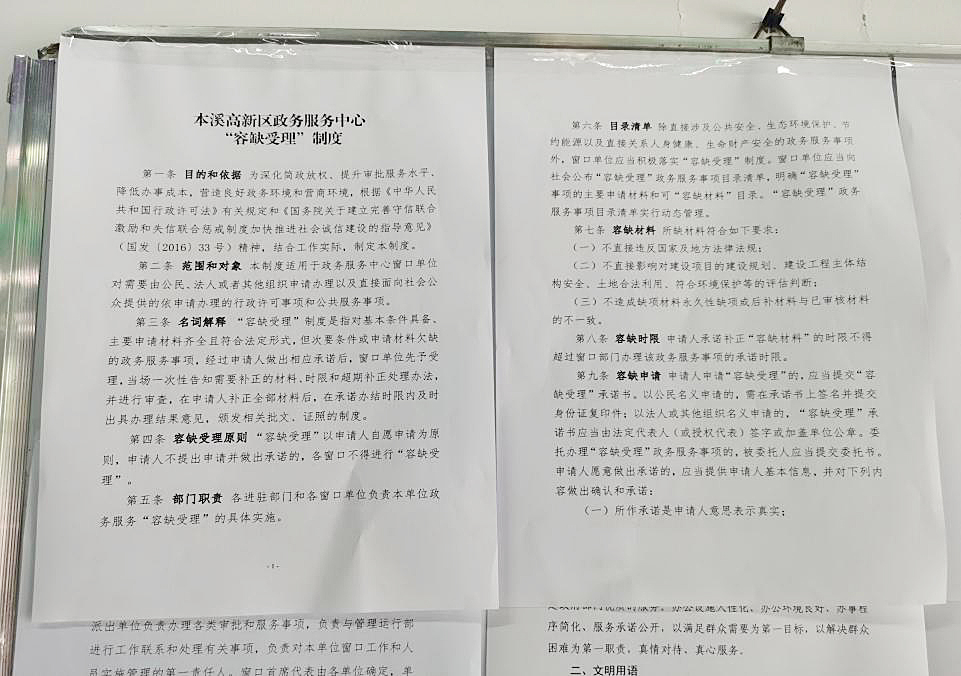 本溪高新区政务服务中心
“容缺受理”制度
第一条 目的和依据 为深化简政放权、提升审批服务水平、
降低办事成本，营造良好政务环境和营商环境，根据《中华人民
共和国行政许可法》有关规定和《国务院关于建立完善守信联合
激励和失信联合惩戒制度加快推进社会诚信建设的指导意见》
（国发〔2016〕33 号）精神，结合工作实际，制定本制度。
第二条 范围和对象 本制度适用于政务服务中心窗口单位
对需要由公民、法人或者其他组织申请办理以及直接面向社会公
众提供的依申请办理的行政许可事项和公共服务事项。
第三条 名词解释 “容缺受理”制度是指对基本条件具备、
主要申请材料齐全且符合法定形式，但次要条件或申请材料欠缺
的政务服务事项，经过申请人做出相应承诺后，窗口单位先予受
理，当场一次性告知需要补正的材料、时限和超期补正处理办法，
并进行审查，在申请人补正全部材料后，在承诺办结时限内及时
出具办理结果意见，颁发相关批文、证照的制度。
第四条 容缺受理原则 “容缺受理”以申请人自愿申请为原
则，申请人不提出申请并做出承诺的，各窗口不得进行“容缺受
理”。
第五条 部门职责 各进驻部门和各窗口单位负责本单位政
务服务“容缺受理”的具体实施。
- 1 -
派出单位负责办理各类审批和服务事项，负责与管理运行部
进行工作联系和处理有关事项，负责对本单位窗口工作和人
员实施管理的第一责任人。窗口首席代表由各单位确定，单
第六条 目录清单 除直接涉及公共安全、生态环境保护、节
约能源以及直接关系人身健康、生命财产安全的政务服务事项
外，窗口单位应当积极落实“容缺受理”制度。窗口单位应当向
社会公布“容缺受理”政务服务事项目录清单，明确“容缺受理”
事项的主要申请材料和可“容缺材料”目录。“容缺受理”政务
服务事项目录清单实行动态管理。
第七条 容缺材料 所缺材料符合如下要求：
（一）不直接违反国家及地方法律法规；
（二）不直接影响对建设项目的建设规划、建设工程主体结
构安全、土地合法利用、符合环境保护等的评估判断；
（三）不造成缺项材料永久性缺项或后补材料与已审核材料
的不一致。
第八条 容缺时限 申请人承诺补正“容缺材料”的时限不得
超过窗口部门办理该政务服务事项的承诺时限。
第九条 容缺申请 申请人申请“容缺受理”的，应当提交“容
缺受理”承诺书。以公民名义申请的，需在承诺书上签名并提交
身份证复印件；以法人或其他组织名义申请的，“容缺受理”承
诺书应当由法定代表人（或授权代表）签字或加盖单位公章。委
托办理“容缺受理”政务服务事项的，被委托人应当提交委托书。
申请人愿意做出承诺的，应当提供申请人基本信息，并对下列内
容做出确认和承诺：
（一）所作承诺是申请人意思表示真实；
序简化、服务承诺公开，以满足群众需要为第一目标，以解决群众
困难为第一职责，真情对待、真心服务。
二、文明用语